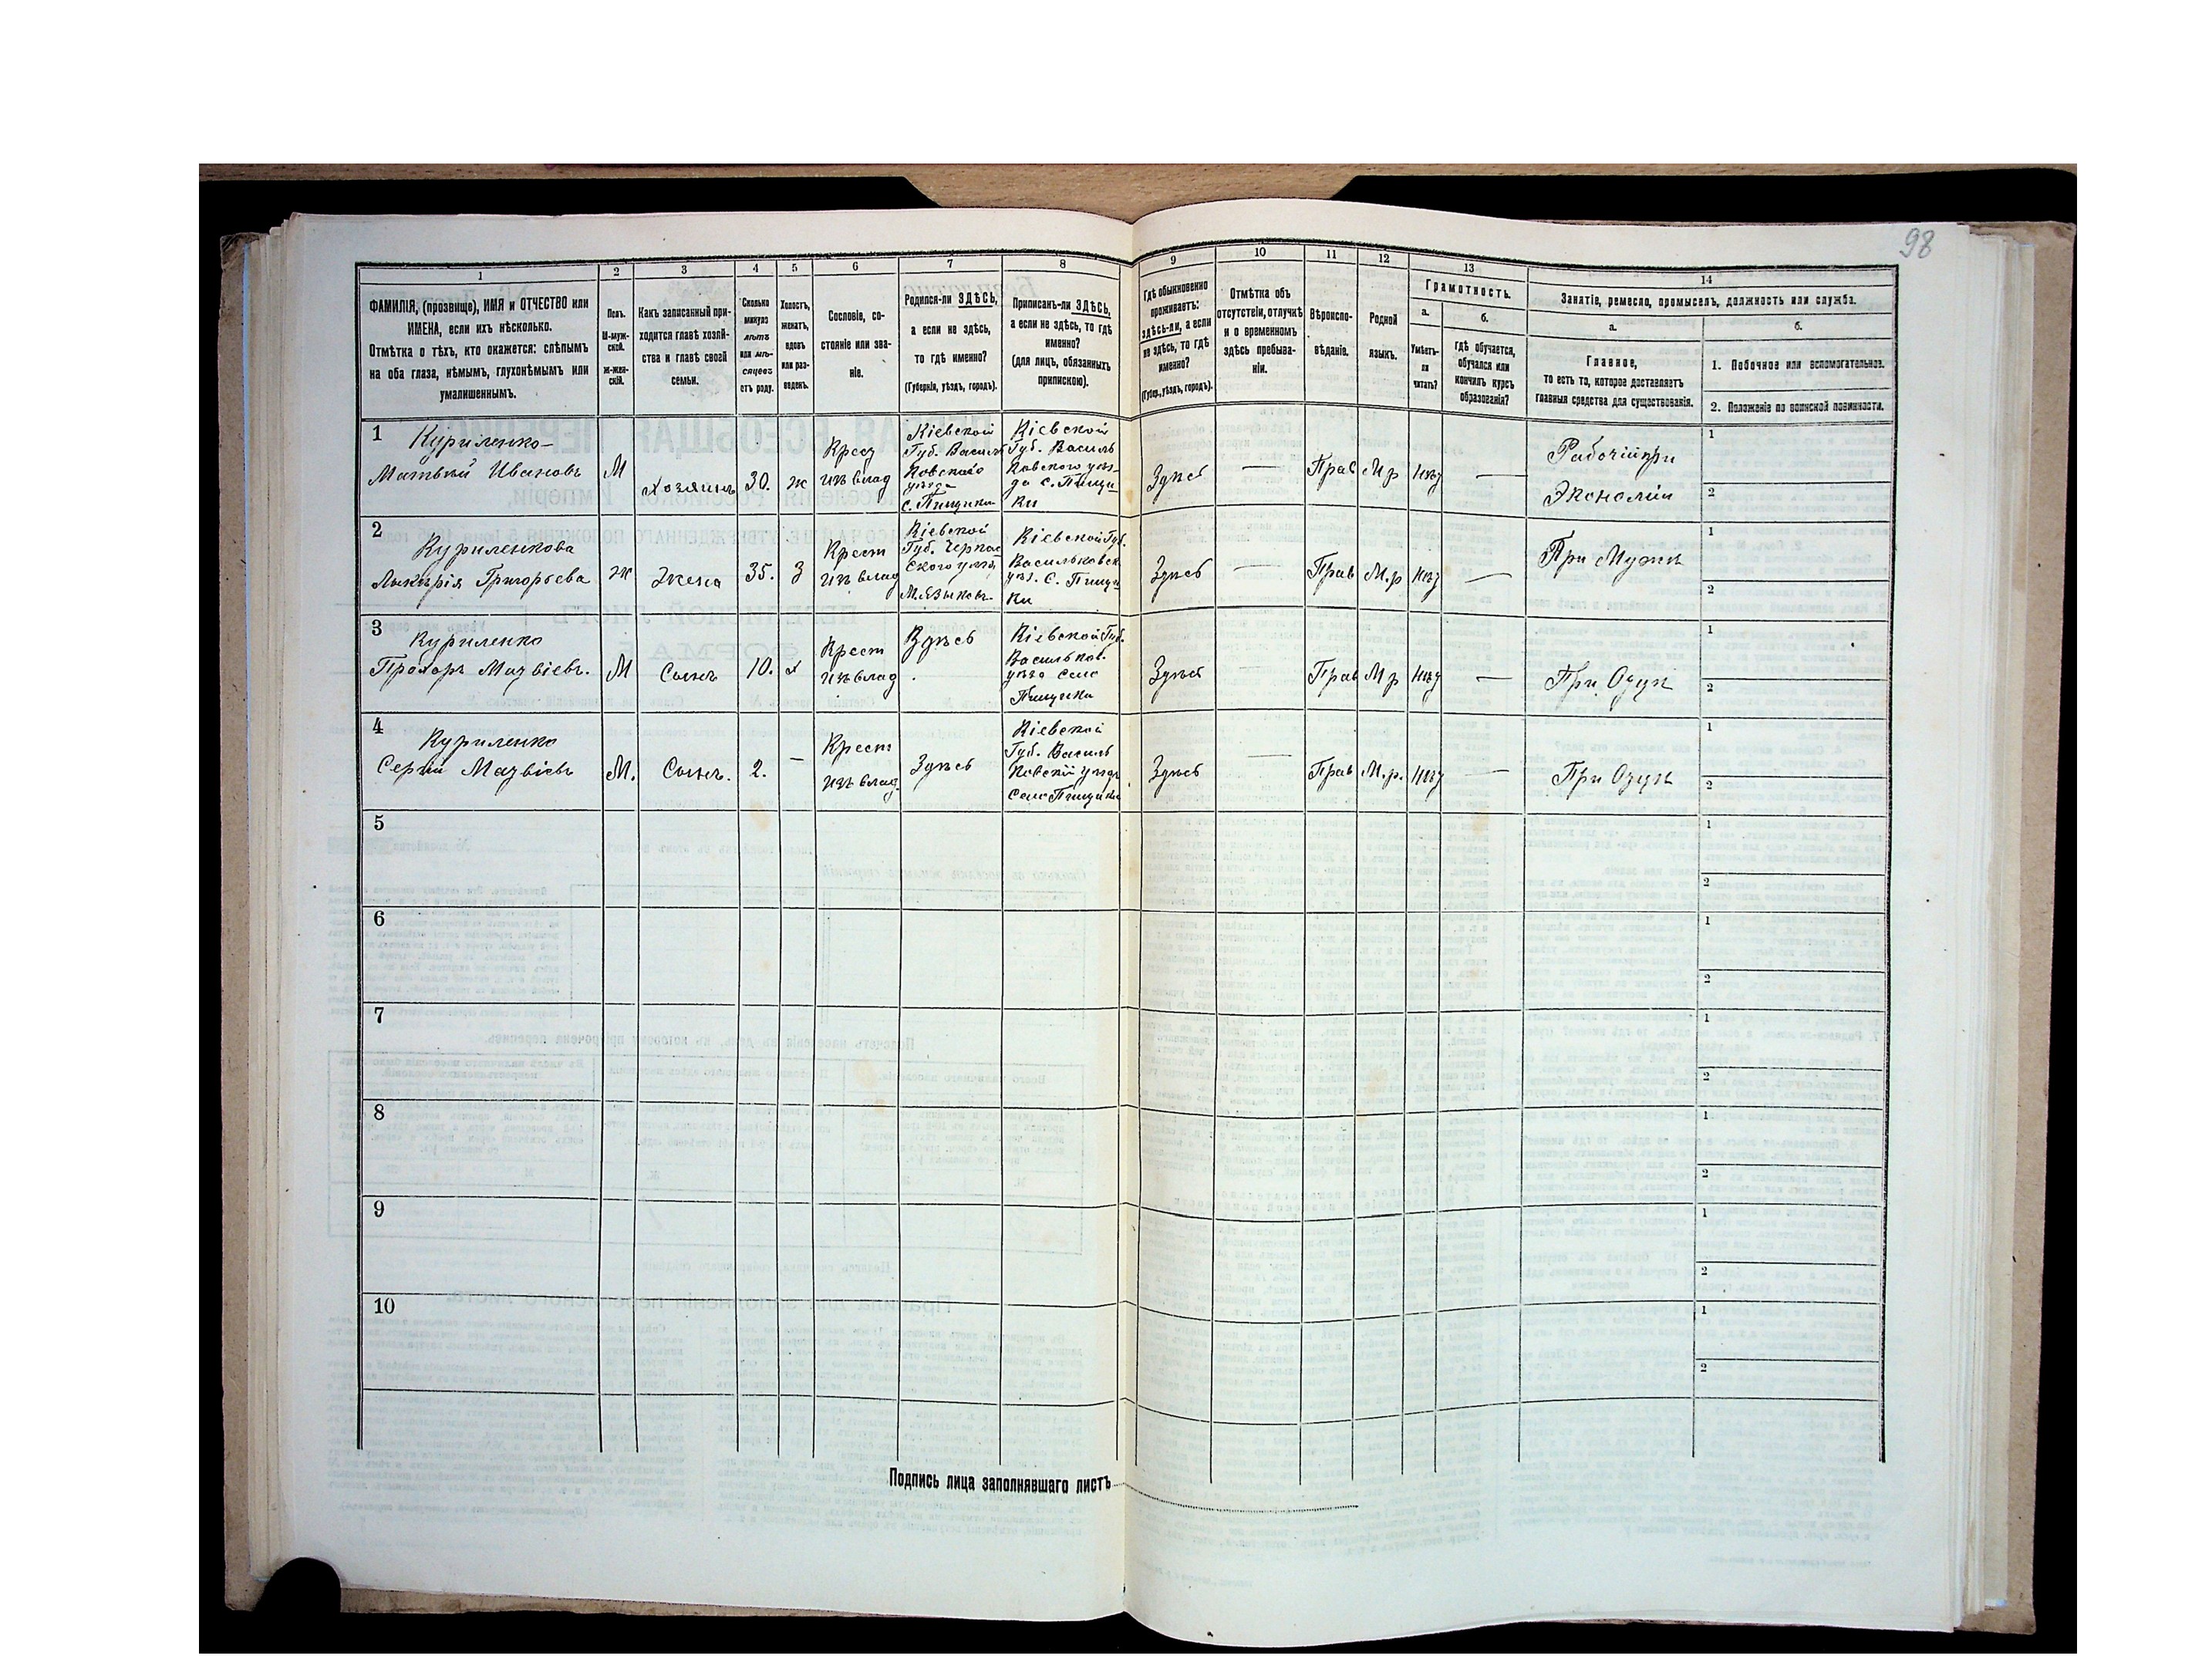 98
1
2
3
4
5
6
7
8
9
10
11
12
13
14
ФАМИЛІЯ, (прозвище), ИМЯ и ОТЧЕСТВО или
ИМЕНА, если ихъ нѣсколько.
Отмѣтка о тѣхъ, кто окажется: слѣпымъ
на оба глаза, нѣмымъ, глухонѣмымъ или
умалишеннымъ.
Полъ.
М-муж-
ской.
ж-жен-
скій.
Какъ записанный при-
ходится главѣ хозяй-
ства и главѣ своей
семьи.
Сколько
минуло
лѣтъ
или мѣ-
сяцевъ
отъ роду.
Холостъ,
женатъ,
вдовъ
или раз-
веденъ.
Сословіе, со-
стояніе или зва-
ніе.
Родился-ли ЗДѢСЬ,
а если не здѣсь,
то гдѣ именно?
(Губернія, уѣздъ, городъ).
Приписанъ-ли ЗДѢСЬ,
а если не здѣсь, то гдѣ
именно?
(для лицъ, обязанныхъ
припискою).
Гдѣ обыкновенно
проживаетъ:
здѣсь-ли, а если
не здѣсь, то гдѣ
именно?
(Губер., уѣздъ, городъ).
Отмѣтка объ
отсутствіи, отлучкѣ
и о временномъ
здѣсь пребыва-
ніи.
Вѣроиспо-
вѣданіе.
Родной
языкъ.
Грамотность.
а.
б.
Умѣетъ-
ли
читать?
гдѣ обучается,
обучался или
кончилъ курсъ
образованія?
Занятіе, ремесло, промыселъ, должность или служба.
а.
б.
Главное,
то есть то, которое доставляетъ
главныя средства для существованія.
1. Побочное или вспомогательное.
2. Положеніе по воинской повинности.
1
Куриленко-
Матвѣй Ивановъ
М
Хозяинъ
30.
ж
Крест
изъ влад
Кіевской
Губ. Василь
ковскаго
уѣзда
с. Пищики
Кіевской
Губ. Василь
ковскаго уѣз-
да с. Пищи-
ки
Здѣсь
—
Прав
М р
нѣт
—
Рабочій при
Экономіи
1
2
2
Куриленкова
Лыкерія Григорьева
ж
Жена
35.
З
Крест
изъ влад
Кіевской
Губ. Черкас
скаго уѣзд
М. Язынова.
Кіевской Губ.
Васильковск
уѣз. С. Пищи
ки
Здѣсь
—
Прав
М.р
нѣт
—
При Мужѣ
1
2
3
Куриленко
Прохоръ Матвіевъ.
М
Сынъ
10.
х
Крест
изъ влад
Здѣсь
Кіевской Губ.
Васильков.
уѣзд село
Пищики
Здѣсь
—
Прав
М р
нѣт
—
При Отцѣ
1
2
4
Куриленко
Сергій Матвіевъ
М.
Сынъ.
2.
—
Крест
изъ влад.
Здѣсь
Кіевской
Губ. Василь
ковскій уѣздъ
село Пищики
Здѣсь
—
Прав
М.р.
нѣт
—
При Отцѣ
1
2
5
1
2
6
1
2
7
1
2
8
1
2
9
1
2
10
1
2
Подпись лица заполнявшаго листъ